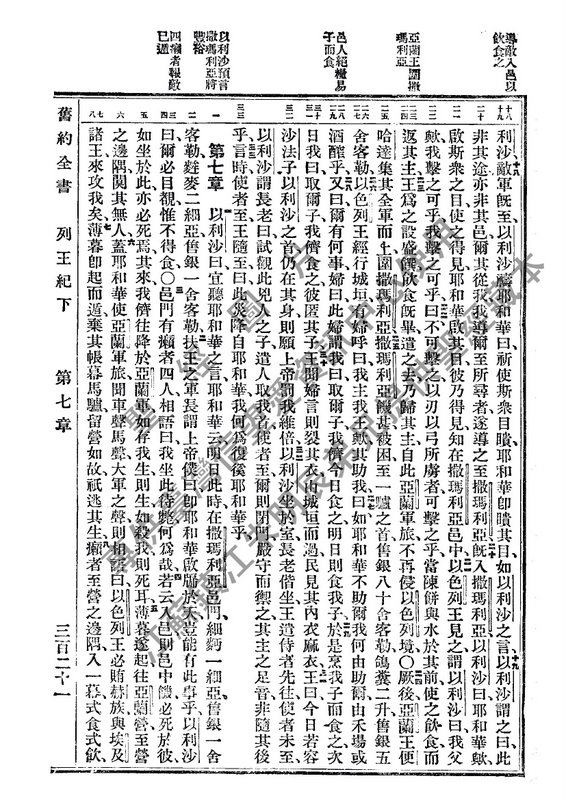 導敵入邑以
飲食之
亞蘭王圍撒
瑪利亞
邑人絕糧易
子而食
以利沙預言
撒瑪利亞將
豐裕
四癩者報敵
已遁
利沙敵軍旣至以利沙禱耶和華曰祈使斯衆目瞶耶和華卽瞶其目如以利沙之言以利沙謂之曰此
非其途亦非其邑爾其從我我導爾至所尋者遂導之至撒瑪利亞旣入撒瑪利亞以利沙曰耶和華歟
啟斯衆之目使之得見耶和華啟其目彼乃得見知在撒瑪利亞邑中以色列王見之謂以利沙曰我父
歟我擊之可乎我擊之可乎曰不可擊之以刃以弓所虜者可擊之乎當陳餅與水於其前使之飲食而
返其主王爲之設盛饌飲食旣畢遣之去乃歸其主自此亞蘭軍旅不再侵以色列境〇厥後亞蘭王便
哈達集其全軍而上圍撒瑪利亞撒瑪利亞饑甚被困至一驢之首售銀八十舍客勒鴿糞二升售銀五
舍客勒以色列王經行城垣有婦呼曰我主我王歟助我曰如耶和華不助爾我何由助爾由禾場或
酒醡乎又曰爾有何事婦曰此婦謂我曰取爾子我儕今日食之明日則食我子於是烹我子而食之次
日我曰取爾子我儕食之彼匿其子王聞婦言則裂其衣由城垣而過民見其內衣麻衣王曰今日若容
沙法子以利沙之首仍在其身則願上帝罰我維倍以利沙坐於室長老偕坐王遣侍者先往使者未至
以利沙謂長老曰試觀此凶人之子遣人取我首使者至爾則閉門嚴守而禦之其主之足音非隨其後
乎言時使者至王隨至曰此災降自耶和華我何爲復徯耶和華乎
第七章 以利沙曰宜聽耶和華之言耶和華云明日此時在撒瑪利亞邑門細麪一細亞售銀一舍
客勒麰麥二細亞售銀一舍客勒扶王之軍長謂上帝僕曰卽耶和華啟牖於天豈能有此事乎以利沙
曰爾必目覩惟不得食〇邑門有癩者四人相語曰我坐此待斃何爲哉若云入邑則邑中饑必死於彼
如坐於此亦必死焉其來我儕往降於亞蘭軍如存我生則生如殺我則死耳薄暮遂起往亞蘭營至營
之邊隅闃其無人蓋耶和華使亞蘭軍旅聞車聲馬聲大軍之聲則相語曰以色列王必賄赫族與埃及
諸王來攻我矣薄暮卽起而遁棄其帳幕馬驢留營如故祇逃其生癩者至營之邊隅入一幕式食式飲
舊約全書 列王紀下 第七章 三百二十一